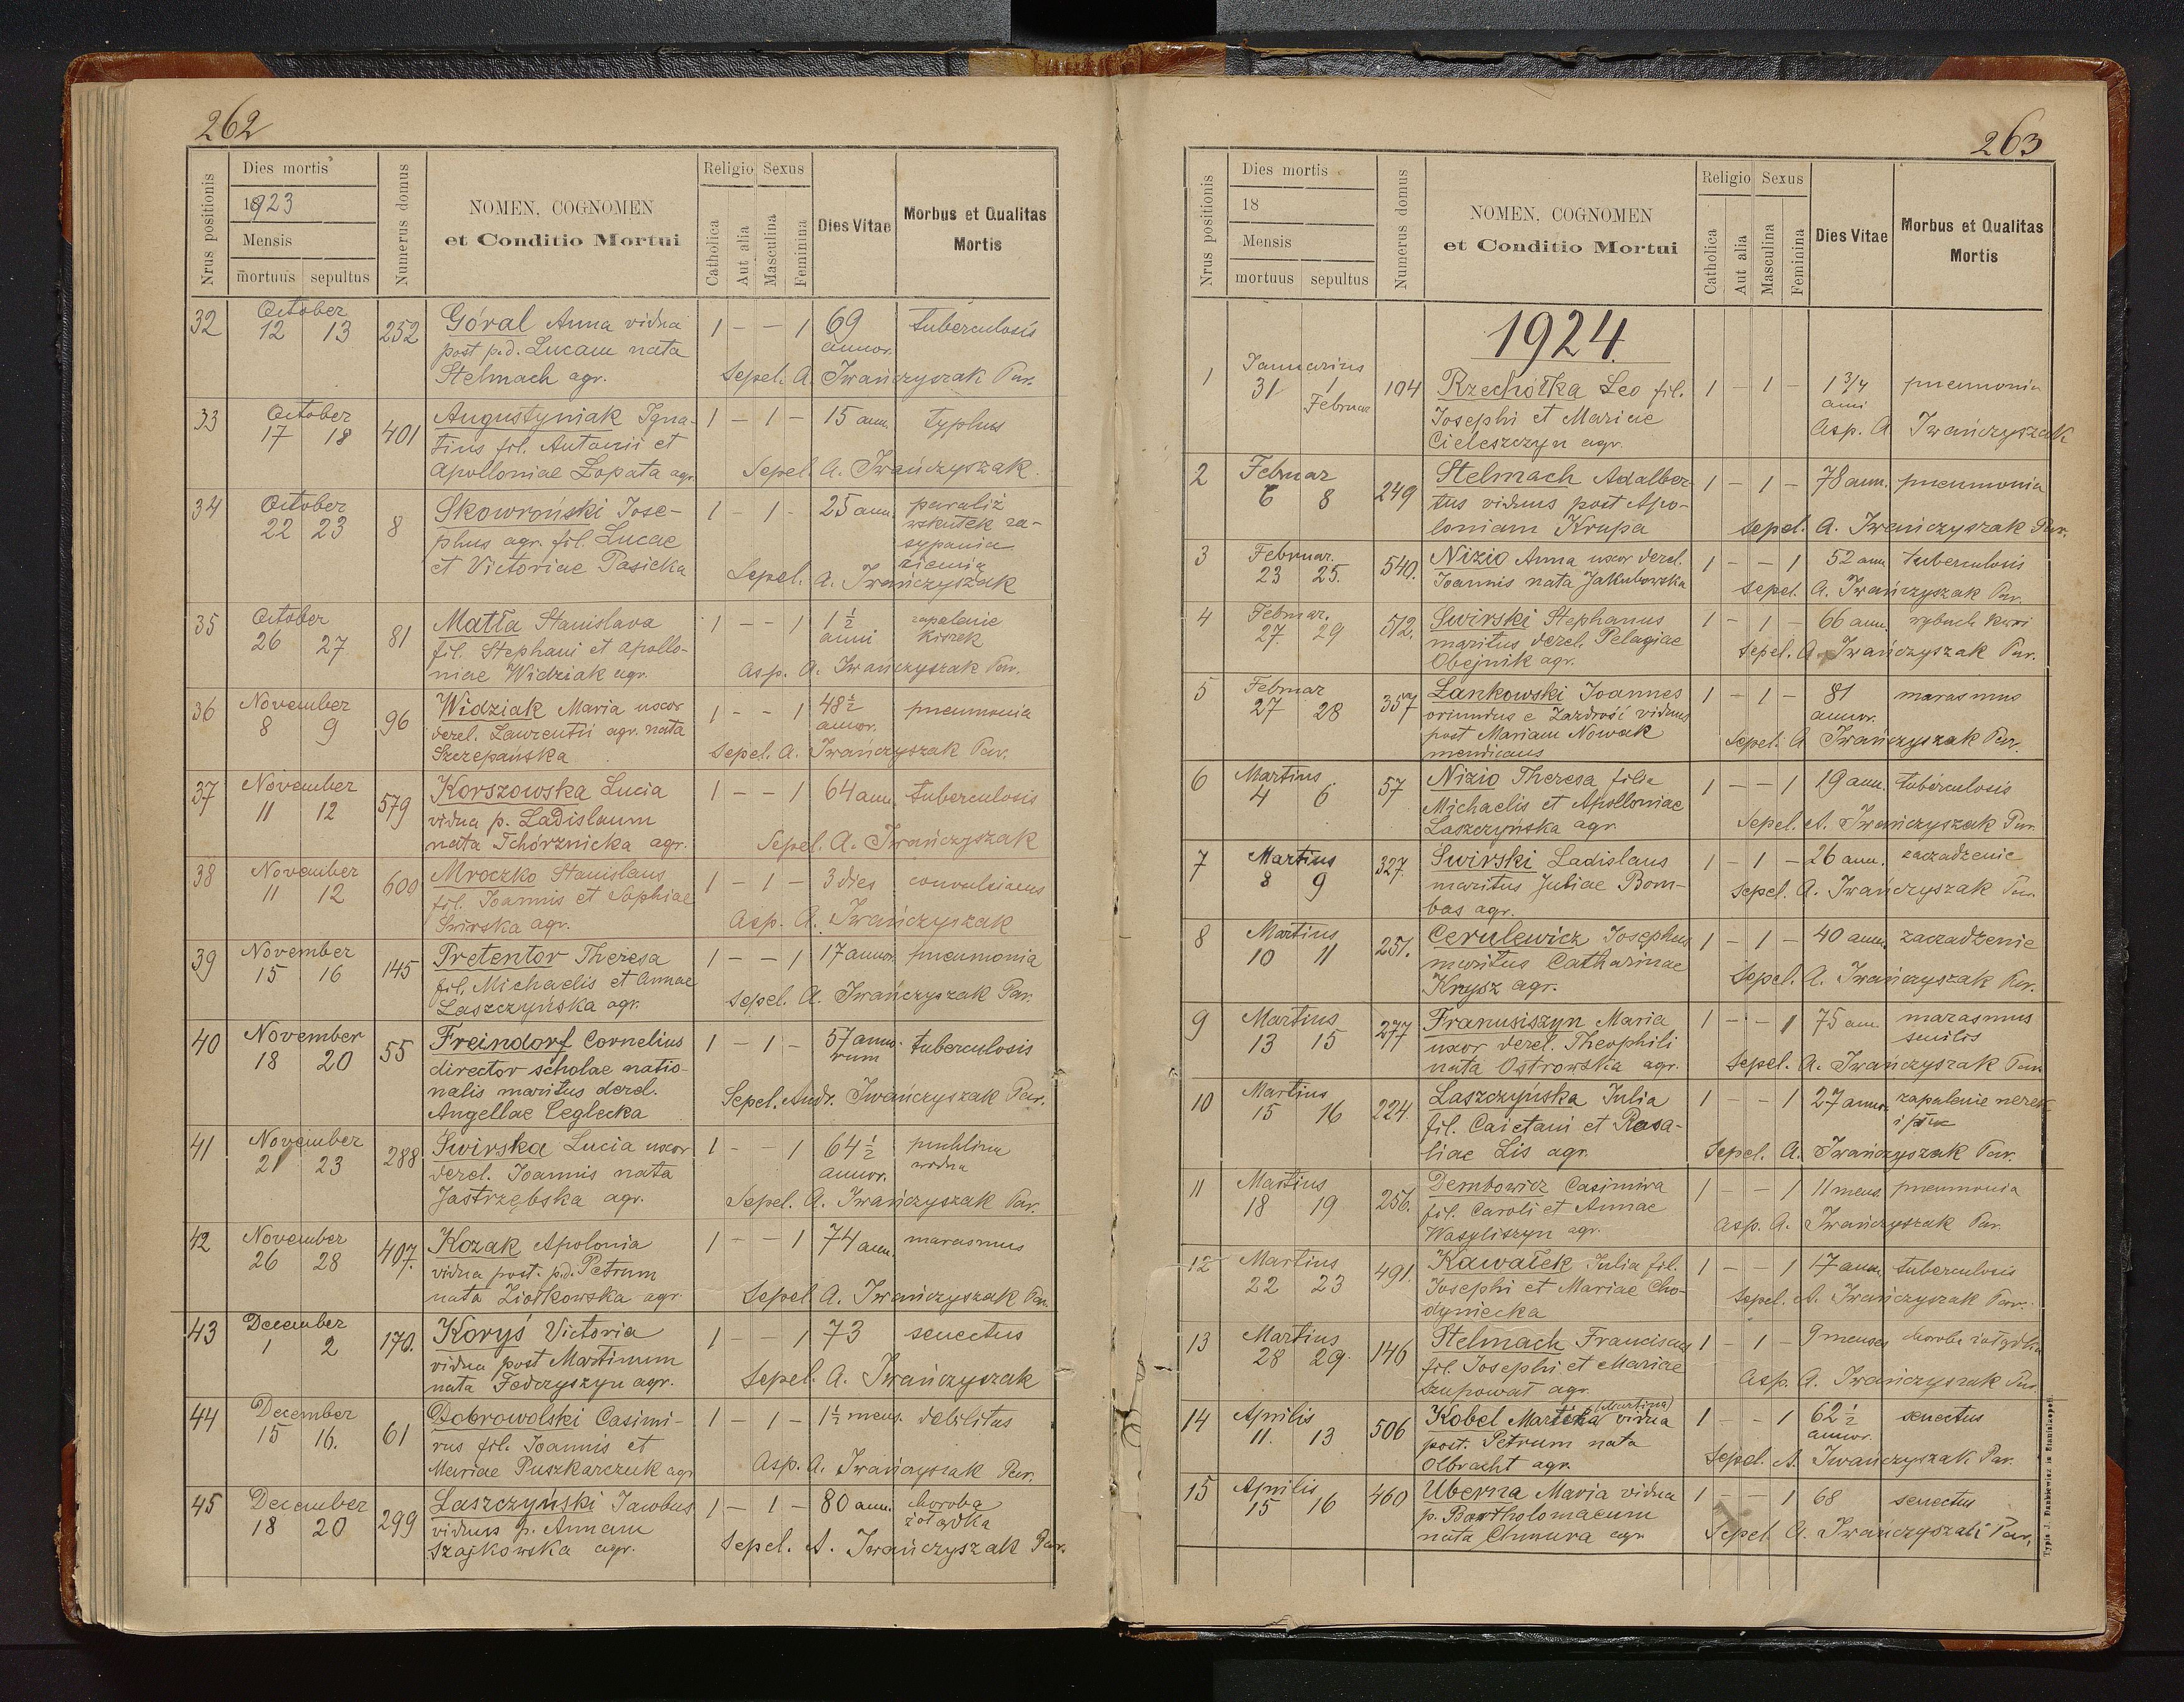 262
Nrus positionis
Dies mortis
1923
Mensis
mortuus sepultus
Numerus domus
NOMEN, COGNOMEN
et Conditio Mortui
Religio Sexus
Catholica
Aut alia
Masculina
Feminina
Dies Vitae
Morbus et Qualitas
Mortis
32 October 12 13 252 Góral Anna vidua 1 – – 1 69 tuberculosis
post p.d. Lucam nata annor.
Stelmach agr. Sepel. A. Iwańczyszak Par.
33 October 17 18 401 Augustyniak Igna- 1 – 1 – 15 ann. typhus
tius fil. Antonii et
Apolloniae Łopata agr. Sepel. A. Iwańczyszak
34 October 22 23 8 Skowroński Jose- 1 – 1 – 25 ann. paraliż
phus agr. fil. Lucae wskutek za-
et Victoriae Pasicka sypania
ziemią
Sepel. A. Iwańczyszak
35 October 26 27 81 Matła Stanislava 1 – – 1 1 1/2 zapalenie
fil. Stephani et Apollo- anni kiszek
niae Widziak agr. Asp. A. Iwańczyszak Par.
36 November 8 9 96 Widziak Maria uxor 1 – – 1 48 1/2 pneumonia
derel. Laurentii agr. nata annor.
Szczepańska Sepel. A. Iwańczyszak Par.
37 November 11 12 579 Korszowska Lucia 1 – – 1 64 ann. tuberculosis
vidua p. Ladislaum
nata Tchórznicka agr. Sepel. A. Iwańczyszak
38 November 11 12 600 Mroczko Stanislaus 1 – 1 – 3 dies
fil. Joannis et Sophiae
Świrska agr. Asp. A. Iwańczyszak
39 November 15 16 145 Pretentor Theresa 1 – – 1 17 annor. pneumonia
fil. Michaelis et Annae
Laszczyńska agr. Sepel. A. Iwańczyszak Par.
40 November 18 20 55 Freindorf Cornelius 1 – 1 – 57 anno- tuberculosis
director scholae natio- rum
nalis maritus derel.
Angellae Ceglecka Sepel. Andr. Iwańczyszak Par.
41 November 21 23 288 Świrska Lucia uxor 1 – – 1 64 1/2 puchlina
derel. Joannis nata annor. wodna
Jastrzębska agr. Sepel. A. Iwańczyszak Par.
42 November 26 28 407. Kozak Apolonia 1 – – 1 74 ann. marasmus
vidua post. p.d. Petrum
nata Ziołkowska agr. Sepel. A. Iwańczyszak Par.
43 December 1 2 170. Koryś Victoria 1 – – 1 73 senectus
vidua post Martinum
nata Fedczyszyn agr. Sepel. A. Iwańczyszak
44 December 15 16. 61 Dobrowolski Casimi- 1 – 1 – 1 1/2 mens. debilitas
rus fil. Joannis et
Mariae Puszkarczuk agr. Asp. A. Iwańczyszak Par.
45 December 18 20 299 Laszczyński Jacobus 1 – 1 – 80 ann. choroba
viduus p. Annam żołądka
Szajkowska agr. Sepel. A. Iwańczyszak Par.
263
Nrus positionis
Dies mortis
18
Mensis
mortuus sepultus
Numerus domus
NOMEN, COGNOMEN
et Conditio Mortui
Religio Sexus
Catholica
Aut alia
Masculina
Feminina
Dies Vitae
Morbus et Qualitas
Mortis
1924.
1 Januarius 31 1 Februar 104 Rzechółka Leo fil. 1 – 1 – 1 3/4 pneumonia
Josephi et Mariae anni
Cieleszczyn agr. Asp. A Iwańczyszak
2 Februar 6 8 249 Stelmach Adalber- 1 – 1 – 78 ann. pneumonia
tus viduus post Apo-
loniam Krupa Sepel. A. Iwańczyszak Par.
3 Februar. 23 25. 540. Nizio Anna uxor derel. 1 – – 1 52 ann. tuberculosis
Joannis nata Jakubowska Sepel. A. Iwańczyszak Par.
4 Februar. 27. 29 512. Świrski Stephanus 1 – 1 – 66 ann. wybuch krwi
maritus derel. Pelagiae
Obejnik agr. Sepel. A Iwańczyszak Par.
5 Februar 27 28 357 Łankowski Joannes 1 – 1 – 81 marasmus
oriundus e Zazdrość viduus annor.
post Mariam Nowak
mendicans Sepel. A Iwańczyszak Par.
6 Martius 4 6 57 Nizio Theresa filia 1 – – 1 19 ann. tuberculosis
Michaelis et Apolloniae
Laszczyńska agr Sepel. A. Iwańczyszak Par.
7 Martius 8 9 327. Świrski Ladislaus 1 – 1 – 26 ann. zaczadzenie
maritus Juliae Bom-
bas agr. Sepel. A. Iwańczyszak Par.
8 Martius 10 11 251. Cerulewicz Josephus 1 – 1 – 40 ann. zaczadzenie
maritus Catharinae
Krysz agr. Sepel. A. Iwańczyszak Par.
9 Martius 13 15 277 Franusiszyn Maria 1 – – 1 75 ann. marasmus
uxor derel. Theophili senilis
nata Ostrowska agr. Sepel. A. Iwańczyszak Par.
10 Martius 15 16 224. Laszczyńska Julia 1 – – 1 27 annor. zapalenie nerek
fil. Caietani et Rosa- i
liae Lis agr. Sepel. A. Iwańczyszak Par.
11 Martius 18 19 256. Dembowicz Casimira 1 – – 1 11 mens. pneumonia
fil. Caroli et Annae
Wasyliszyn agr. Asp. A. Iwańczyszak Par.
12 Martius 22 23 491. Kawałek Julia fil. 1 – – 1 17 ann. tuberculosis
Josephi et Mariae Cho-
dyniecka Sepel. A. Iwańczyszak Par.
13 Martius 28 29. 146 Stelmach Franciscus 1 – 1 – 9 menses choroba żołądka
fil. Josephi et Mariae
Szupował agr. Asp. A. Iwańczyszak Par.
14 Aprilis 11. 13 506 Kobel (Martina) vidua 1 – – 1 62 1/2 senectus
post. Petrum nata annor.
Olbracht agr. Sepel. A. Iwańczyszak Par.
15 Aprilis 15 16 460 Uberna Maria vidua 1 – – 1 68 senectus
p. Bartholomaeum
nata Chmura agr Sepel. A. Iwańczyszak Par.